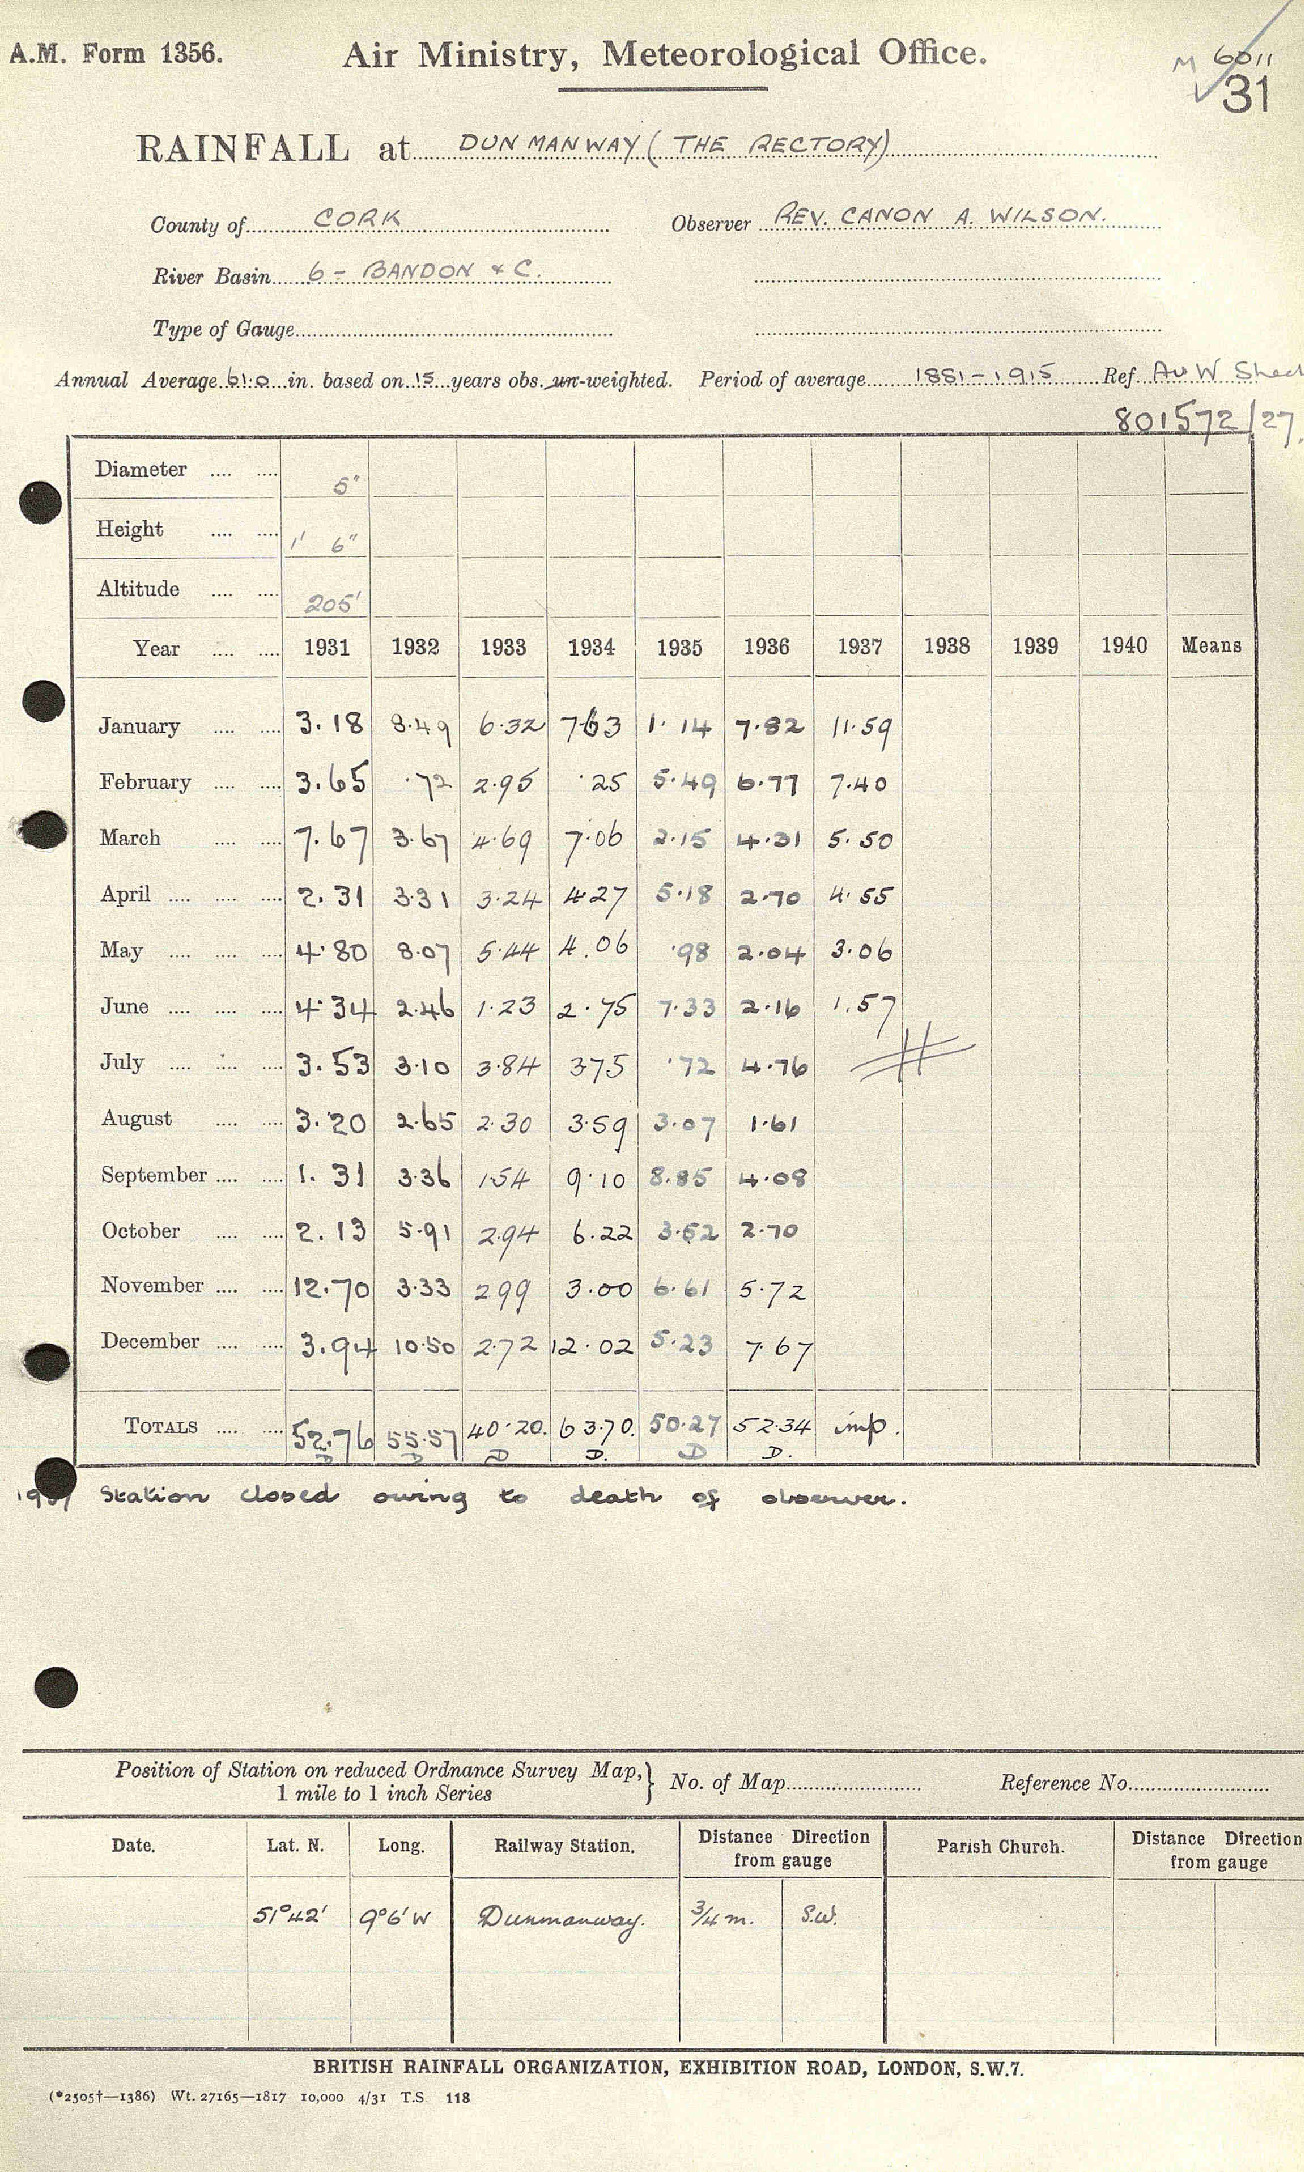 A.M. Form 1356. Air Ministry, Meteorological Office. M 6011
31
RAINFALL at DUNMANWAY (THE RECTORY)
County of CORK Observer REV. CANON A. WILSON.
River Basin 6 - BANDON & C.
Type of Gauge
Annual Average 61.0 in. based on 15 years obs. un-weighted. Period of average 1881-1915 Ref. Av W Sheet
801572/27.
Diameter 5"
Height 1' 6"
Altitude 205'
Year 1931 1932 1933 1934 1935 1936 1937 1938 1939 1940 Means
January 3.18 8.49 6.32 7.63 1.14 7.82 11.59
February 3.65 .72 2.95 .25 5.49 6.77 7.40
March 7.67 3.67 4.69 7.06 2.15 4.31 5.50
April 2.31 3.31 3.24 4.27 5.18 2.70 4.55
May 4.80 8.07 5.44 4.06 .98 2.04 3.06
June 4.34 2.46 1.23 2.75 7.33 2.16 1.57
July 3.53 3.10 3.84 3.75 .72 4.76
August 3.20 2.65 2.30 3.59 3.07 1.61
September 1.31 3.36 1.54 9.10 8.85 4.08
October 2.13 5.91 2.94 6.22 3.52 2.70
November 12.70 3.33 2.99 3.00 6.61 5.72
December 3.94 10.50 2.72 12.02 5.23 7.67
TOTALS 52.76 55.57 40.20. 63.70. 50.27 52.34 imp.
D D D D. D D.
1937 Station closed owing to death of observer.
Position of Station on reduced Ordnance Survey Map, } No. of Map Reference No.
1 mile to 1 inch Series
Date. Lat. N. Long. Railway Station. Distance Direction from gauge Parish Church. Distance Direction from gauge
51°42' 9°6'W Dunmanway. 3/4 m. S.W.
BRITISH RAINFALL ORGANIZATION, EXHIBITION ROAD, LONDON, S.W.7.
(*2505†—1386) Wt. 27165—1817 10,000 4/31 T.S. 118